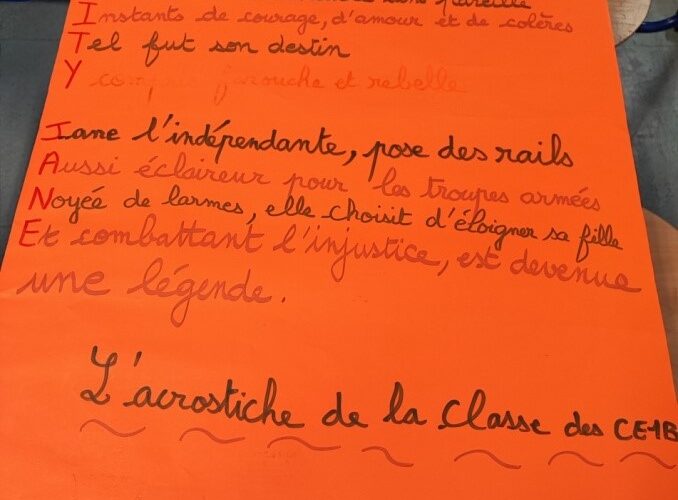 sans pareille
Instants de courage, d'amour et de colères
Tel fut son destin
Y farouche et rebelle
Iane l'indépendante, pose des rails
Aussi éclaireur pour les troupes armées
Noyée de larmes, elle choisit d'éloigner sa fille
Et combattant l'injustice, est devenue
une légende.
L'acrostiche de la Classe des CE1B